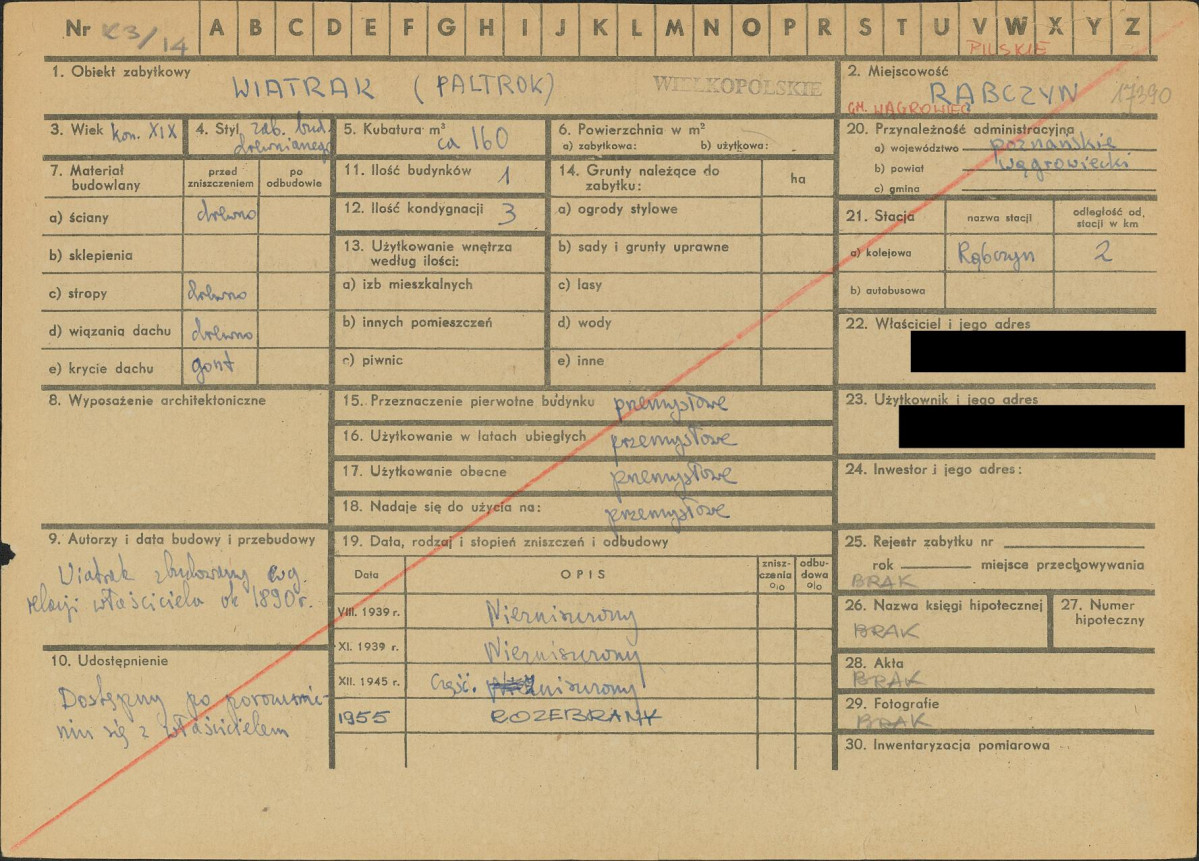 Nr K3/14 A B C D E F G H I J K L M N O P R S T U V W X Y Z
PILSKIE
1. Obiekt zabytkowy
WIATRAK (PALTROK)
WIELKOPOLSKIE
2. Miejscowość
RĄBCZYN 17390
GM. WĄGROWIEC
3. Wiek kon. XIX
4. Styl zab. bud.
drewnianego
5. Kubatura m³
ca 160
6. Powierzchnia w m²
a) zabytkowa: b) użytkowa:
20. Przynależność administracyjna
a) województwo poznańskie
b) powiat wągrowiecki
c) gmina
7. Materiał
budowlany
przed
zniszczeniem
po
odbudowie
a) ściany drewno
b) sklepienia
c) stropy drewno
d) wiązania dachu drewno
e) krycie dachu gont
11. Ilość budynków 1
12. Ilość kondygnacji 3
13. Użytkowanie wnętrza
według ilości:
a) izb mieszkalnych
b) innych pomieszczeń
c) piwnic
14. Grunty należące do
zabytku:
ha
a) ogrody stylowe
b) sady i grunty uprawne
c) lasy
d) wody
e) inne
21. Stacja
nazwa stacji
odległość od,
stacji w km
a) kolejowa Rąbczyn 2
b) autobusowa
22. Właściciel i jego adres
8. Wyposażenie architektoniczne
15. Przeznaczenie pierwotne budynku przemysłowe
16. Użytkowanie w latach ubiegłych przemysłowe
17. Użytkowanie obecne przemysłowe
18. Nadaje się do użycia na: przemysłowe
23. Użytkownik i jego adres
24. Inwestor i jego adres:
9. Autorzy i data budowy i przebudowy
Wiatrak zbudowany wg.
relacji właściciela ok 1890 r.
10. Udostępnienie
Dostępny po porozumie-
niu się z właścicielem
19. Data, rodzaj i stopień zniszczeń i odbudowy
Data
OPIS
znisz-
czenia
%
odbu-
dowa
%
VIII. 1939 r. Niezniszczony
XI. 1939 r. Niezniszczony
XII. 1945 r. Część. zniszczony
1955 ROZEBRANY
25. Rejestr zabytku nr
rok miejsce przechowywania
BRAK
26. Nazwa księgi hipotecznej
BRAK
27. Numer
hipoteczny
28. Akta
BRAK
29. Fotografie
BRAK
30. Inwentaryzacja pomiarowa